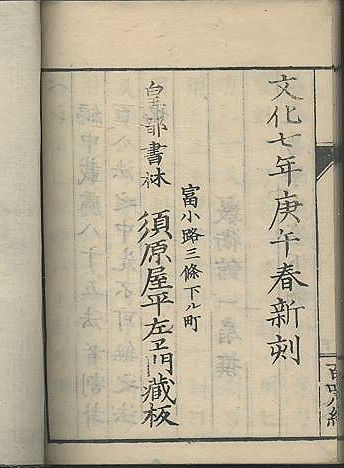 文化七年庚午春新刻
富小路三條下ル町
皇都書林 須原屋平左衛門藏板